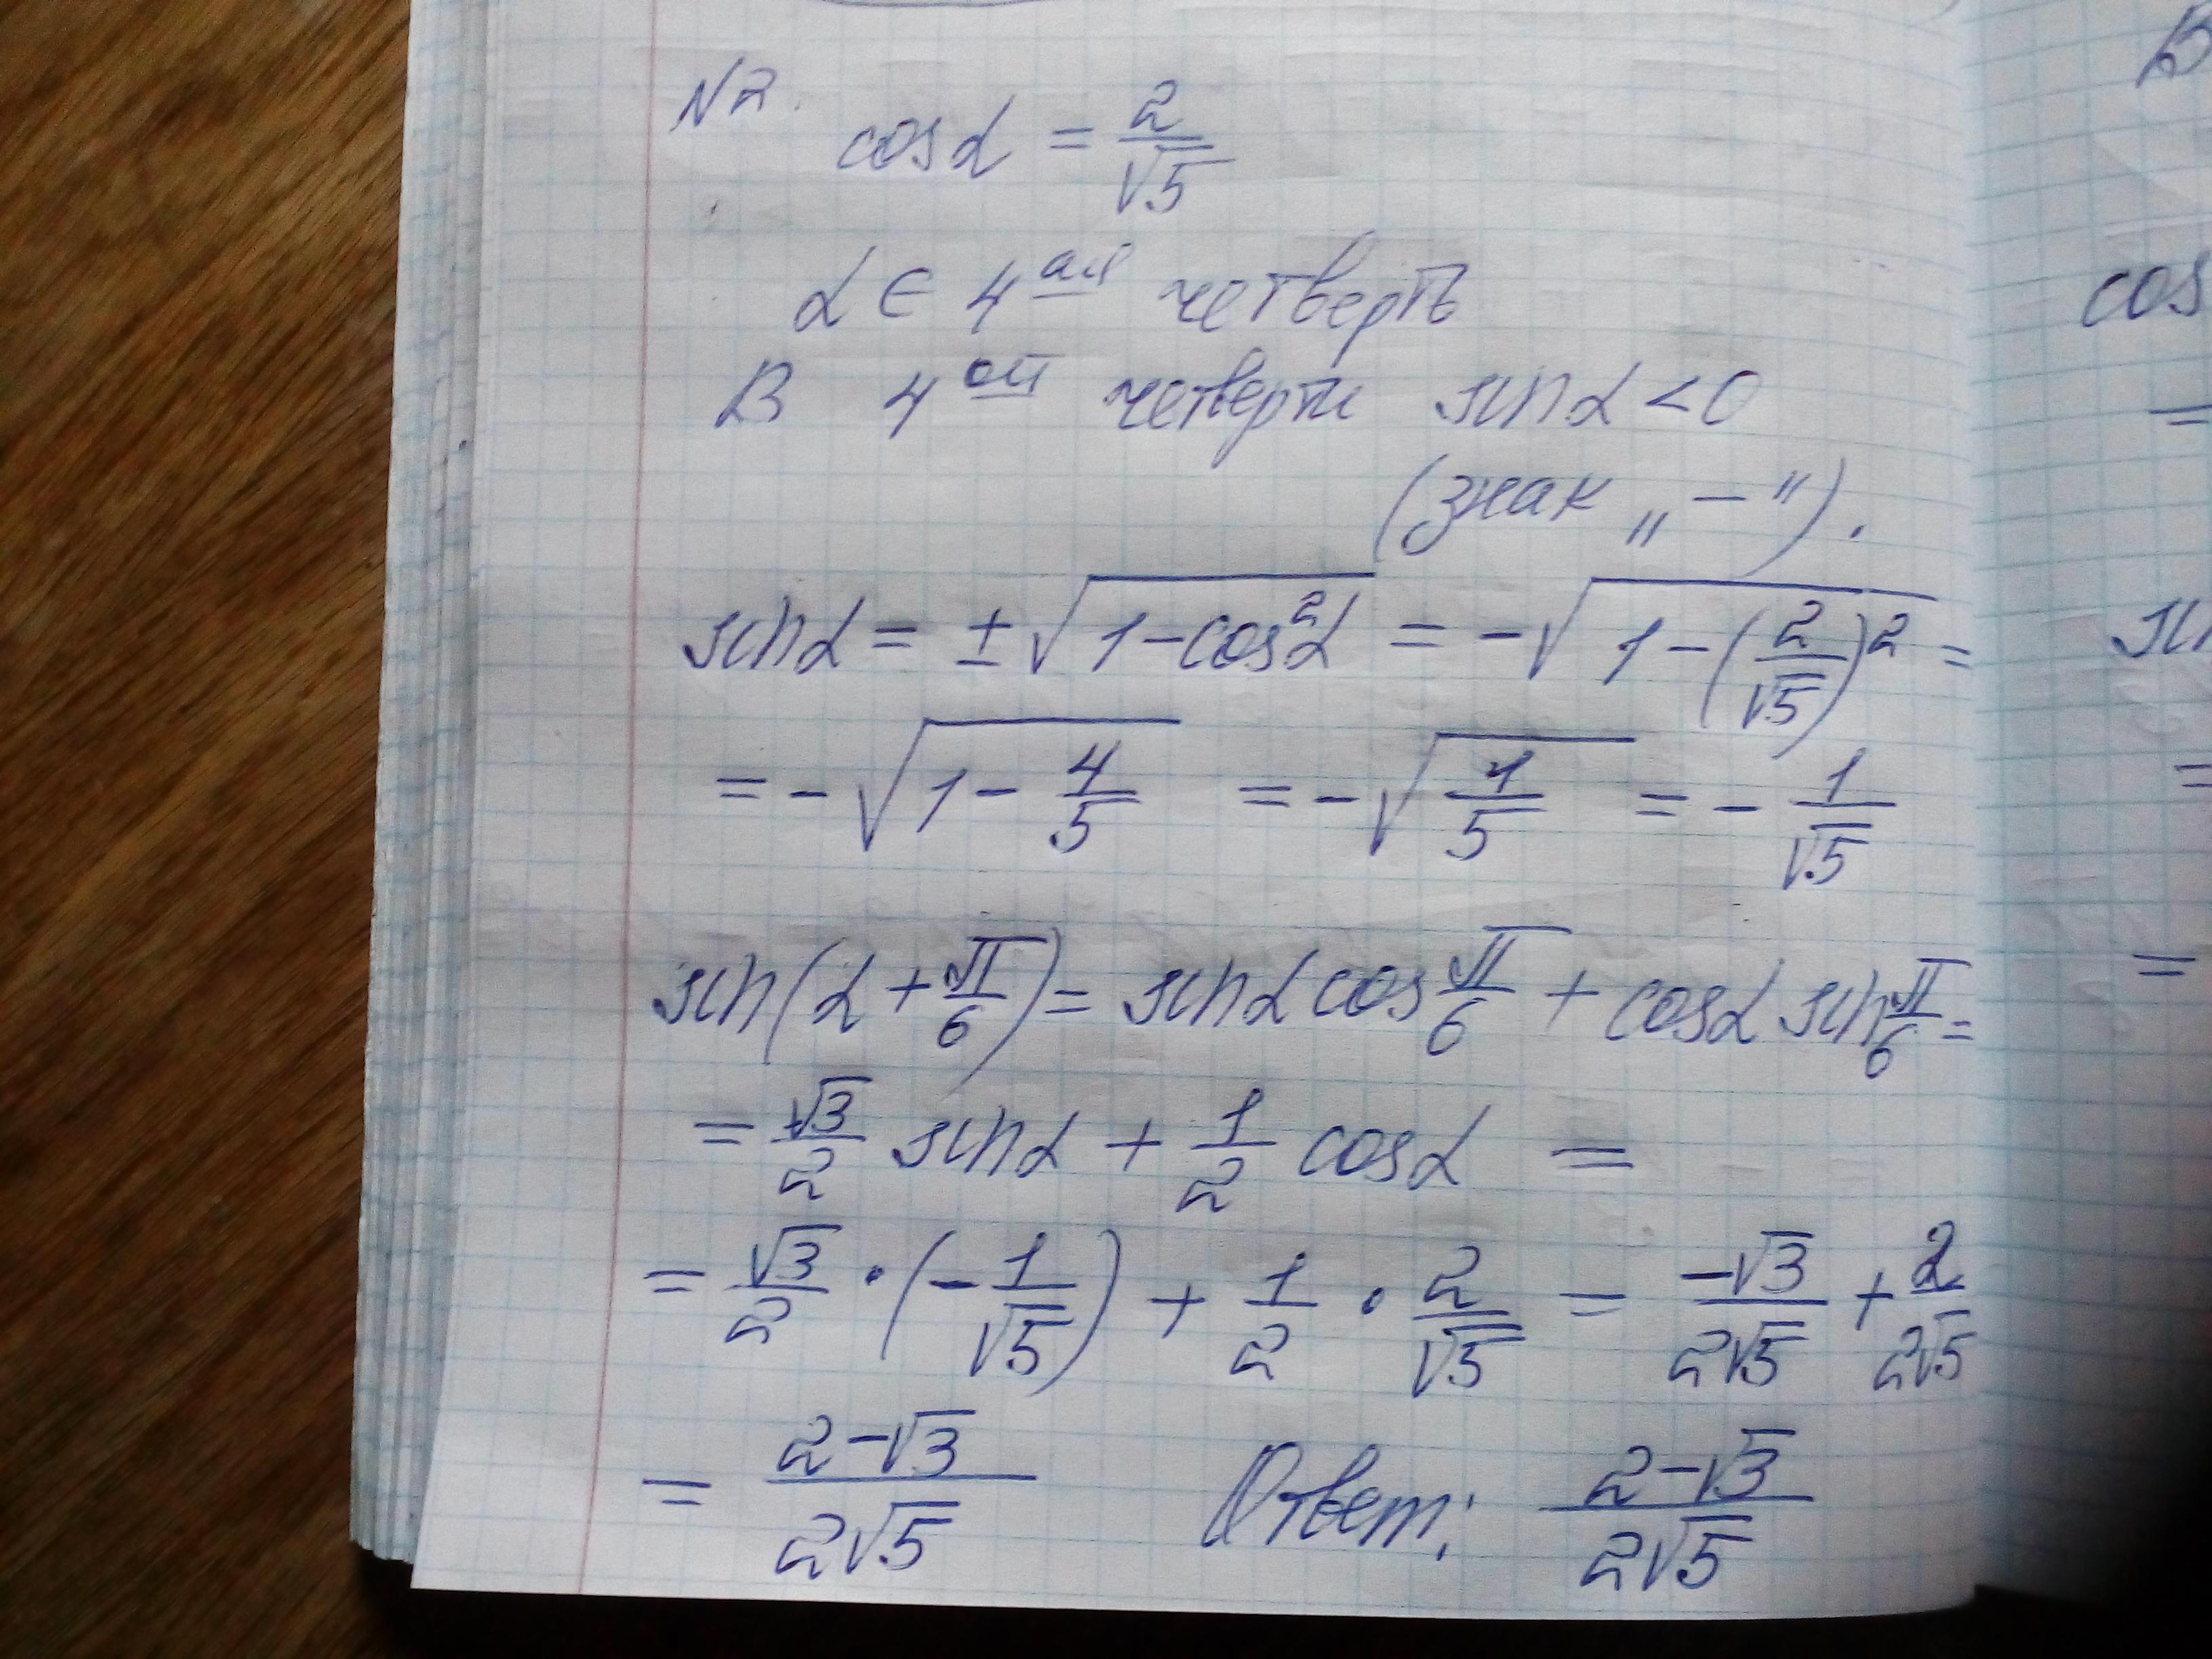 N2.
cosα = 2/√5
α ∈ 4ая четверть
В 4ой четверти sinα < 0
(знак „ – ").
sinα = ±√(1-cos²α) = -√(1-(2/√5)²) =
= -√(1-4/5) = -√(1/5) = -1/√5
sin(α + π/6) = sinα cos π/6 + cosα sin π/6 =
= √3/2 sinα + 1/2 cosα =
= √3/2 · (-1/√5) + 1/2 · 2/√5 = -√3/2√5 + 2/2√5
= (2-√3)/2√5 Ответ: (2-√3)/2√5
В
cos
=
sin
=
=